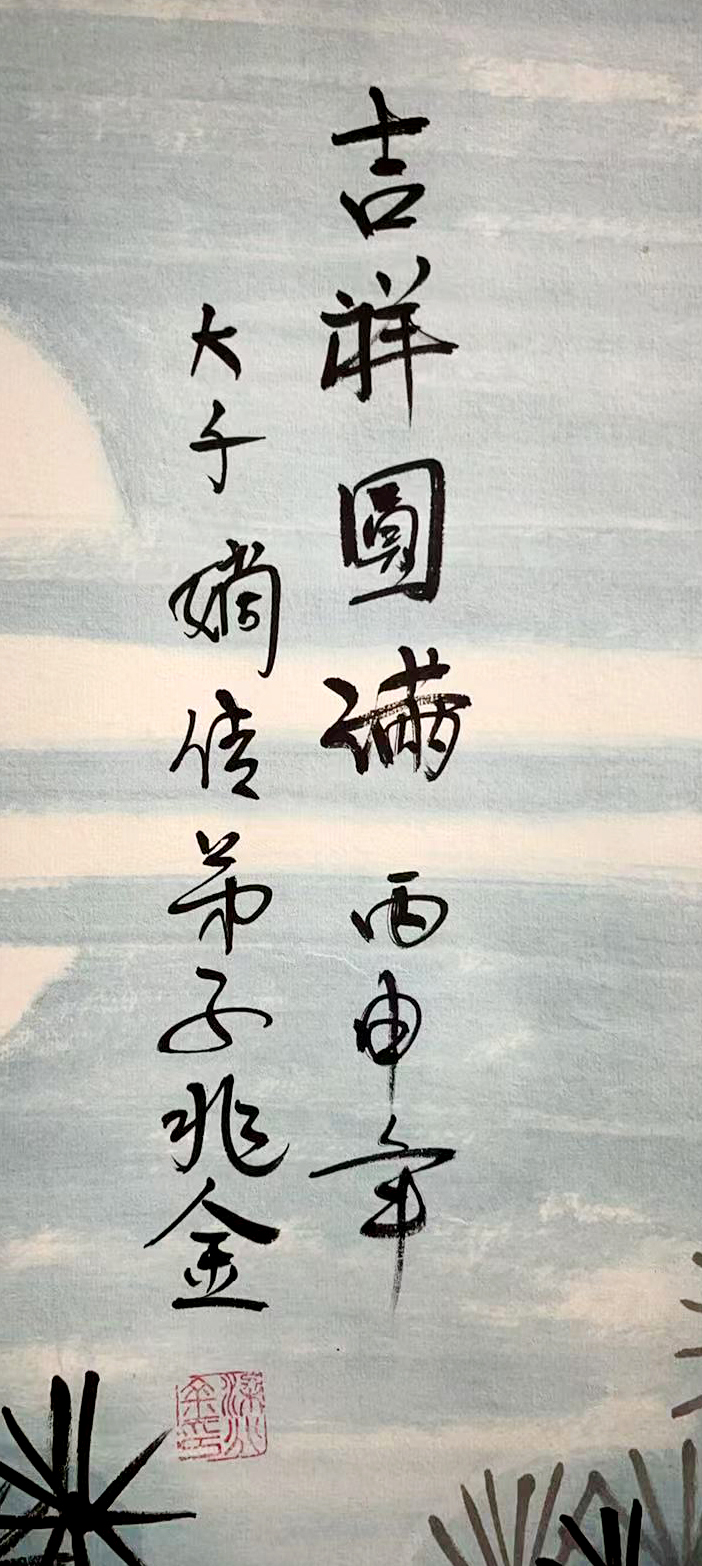 吉祥圓滿 丙申年
大千嫡传弟子兆金